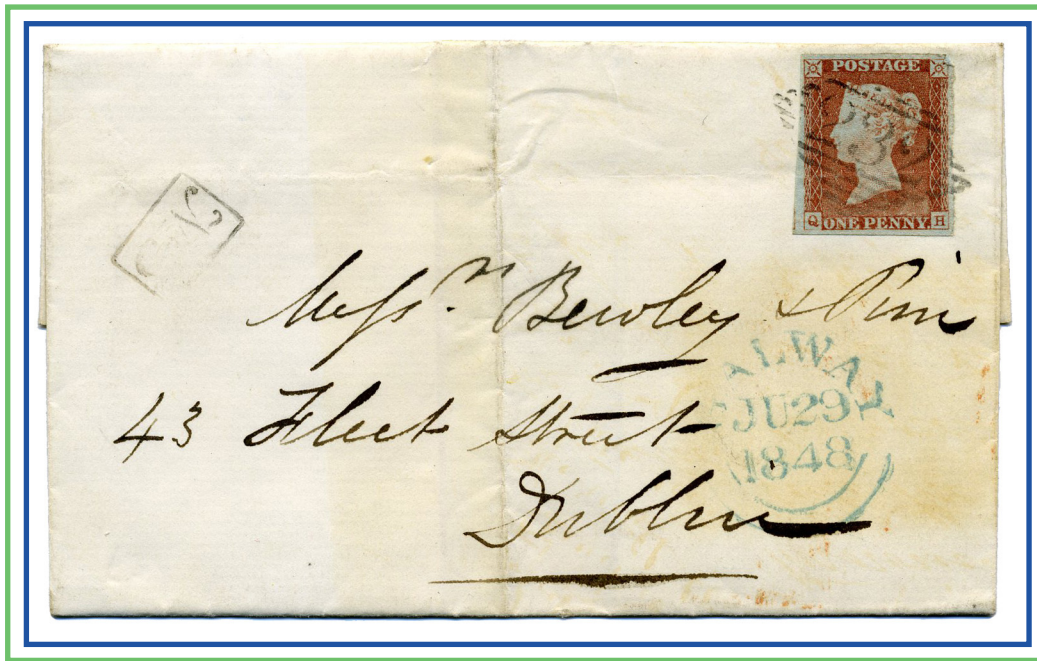 POSTAGE
ONE PENNY.
Q H
Messrs. Bewley & Pim
43 Fleet Street
Dublin
ALWAY
JU29
1848